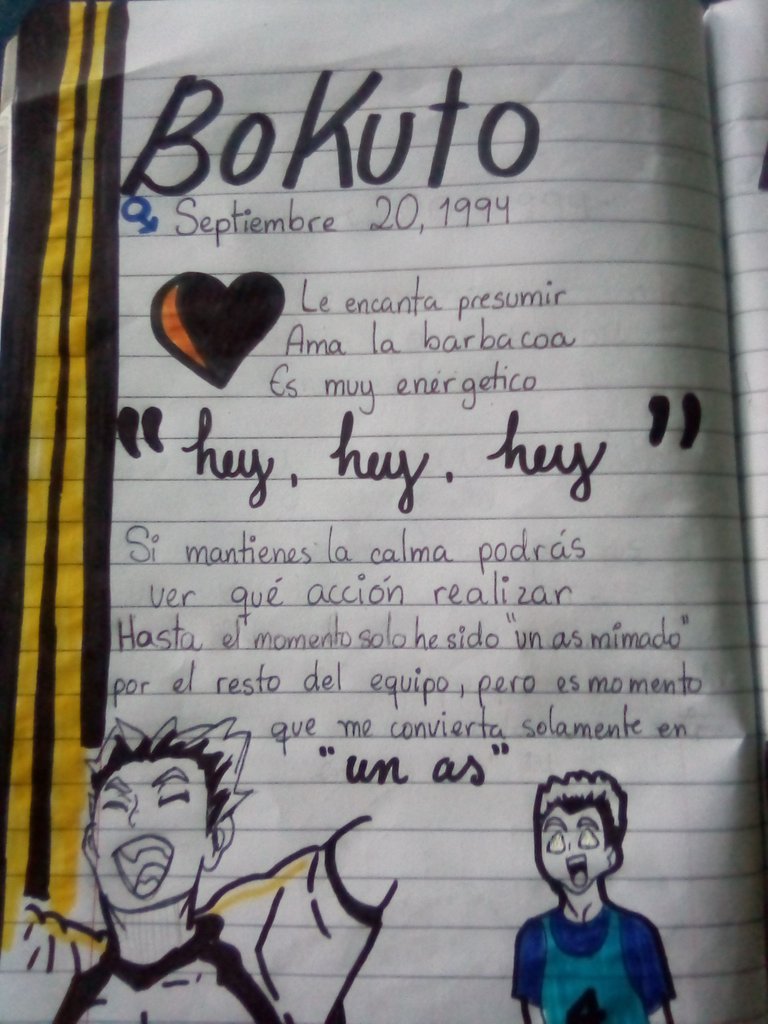 Bokuto
Septiembre 20, 1994
Le encanta presumir
Ama la barbacoa
Es muy enérgetico
"hey, hey, hey"
Si mantienes la calma podrás
ver qué acción realizar
Hasta el momento solo he sido "un as mimado"
por el resto del equipo, pero es momento
que me convierta solamente en
"un as"
4